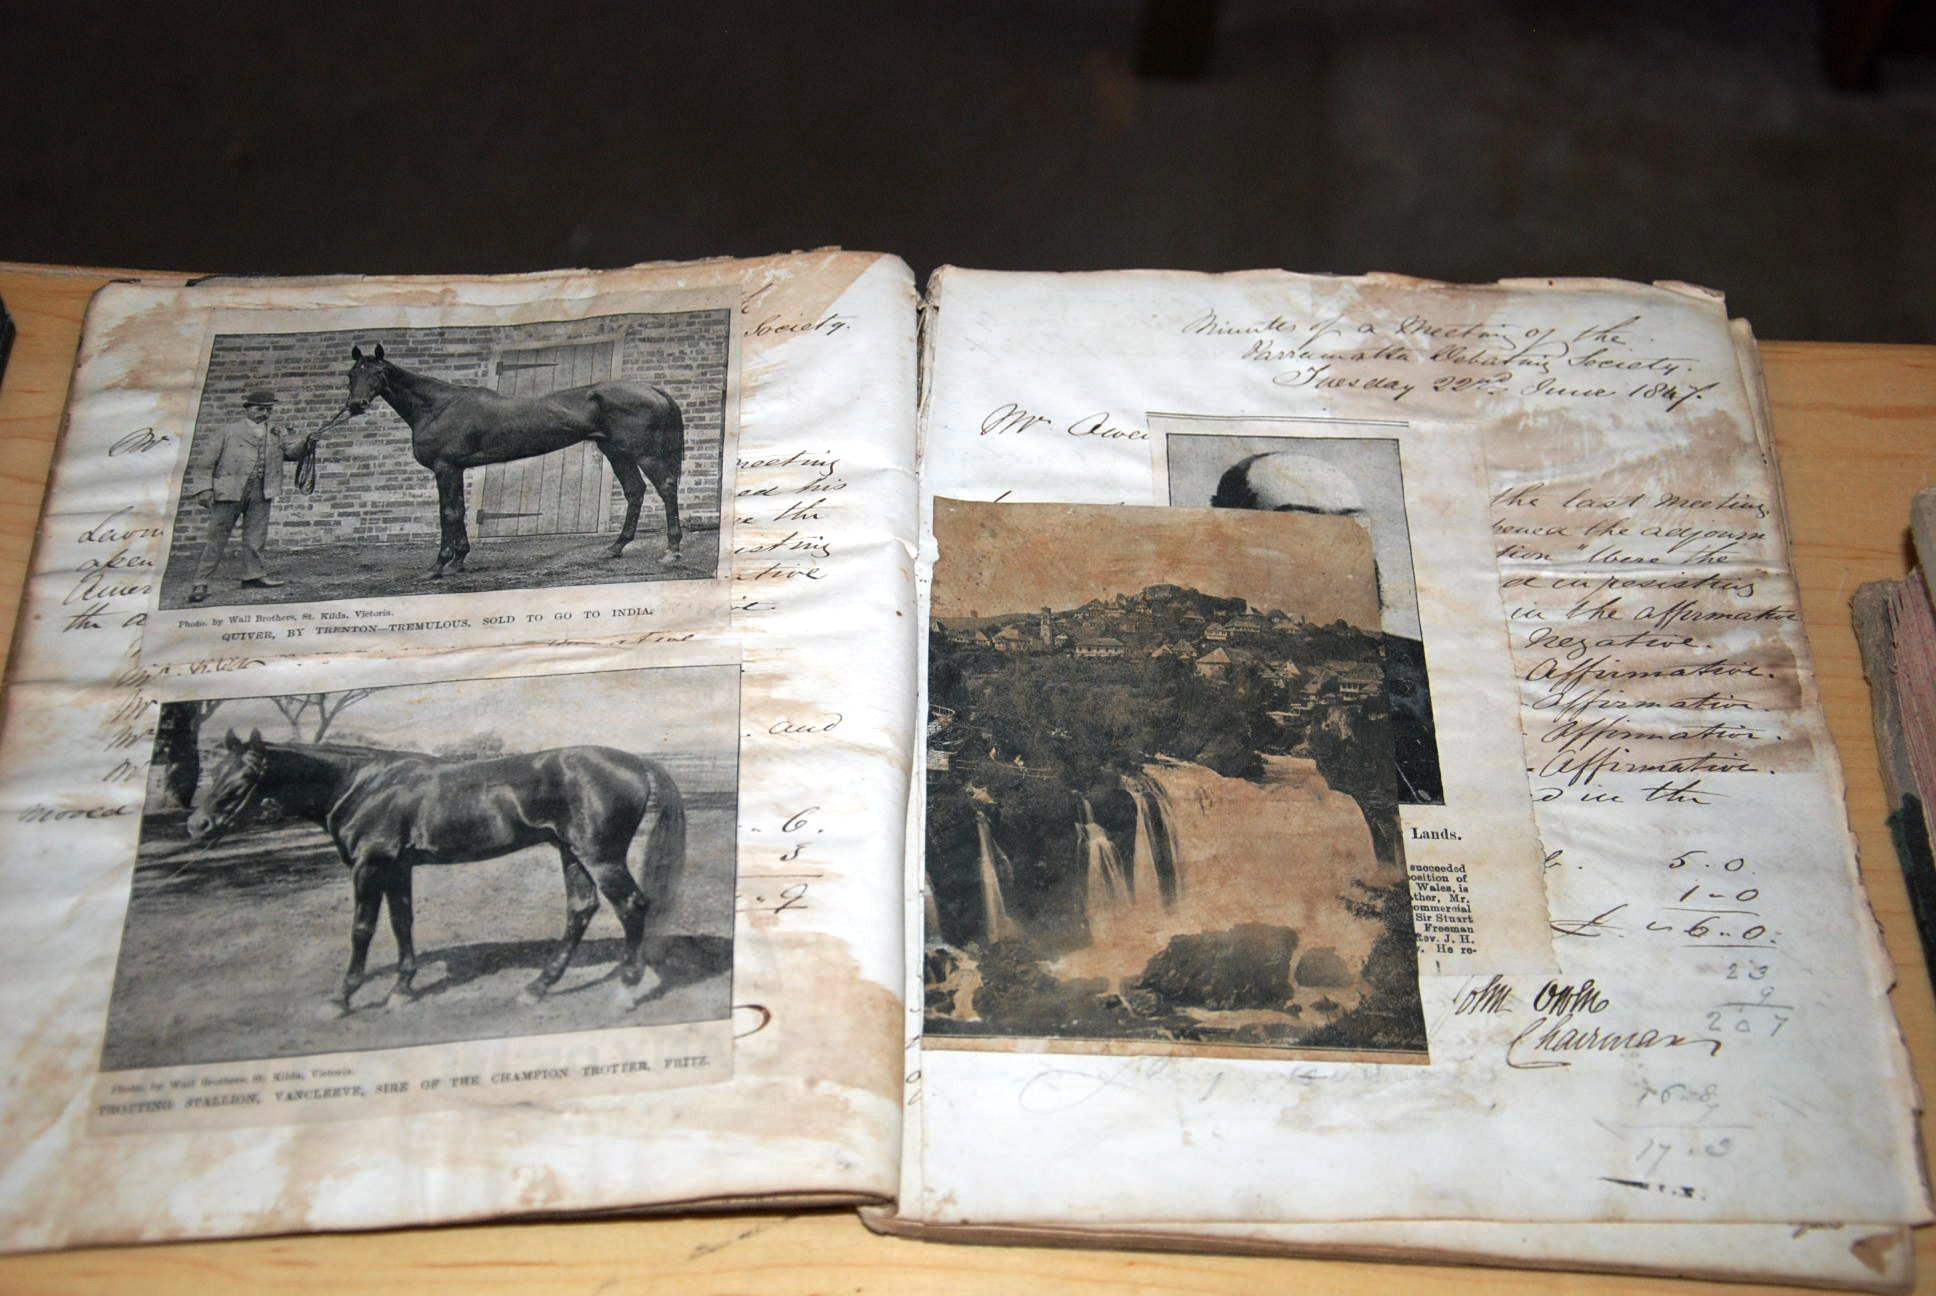 Society.
Mr
meeting
ed his
the
isting
ative
the a
Photo. by Wall Brothers, St. Kilda, Victoria.
QUIVER, BY TRENTON—TREMULOUS, SOLD TO GO TO INDIA.
Mr
Mr
and
moved
6.
3
9
Photo. by Wall Brothers, St. Kilda, Victoria.
TROTTING STALLION, VANCLEEVE, SIRE OF THE CHAMPION TROTTER, FRITZ.
Minutes of a Meeting of the
Parramatta Debating Society.
Tuesday 22nd June 1847.
Mr Owen
the last meeting
pened the adjourn
tion "Were the
d in resisting
in the affirmative
Negative.
Affirmative.
Affirmative.
Affirmative.
Affirmative.
d in the
Lands.
succeeded
position of
Wales, is
ther, Mr.
ommercial
Sir Stuart
Freeman
Rev. J. H.
v. He re-
5.0
1-0
6..0.
23
9
207
John Owen
Chairman
17.3